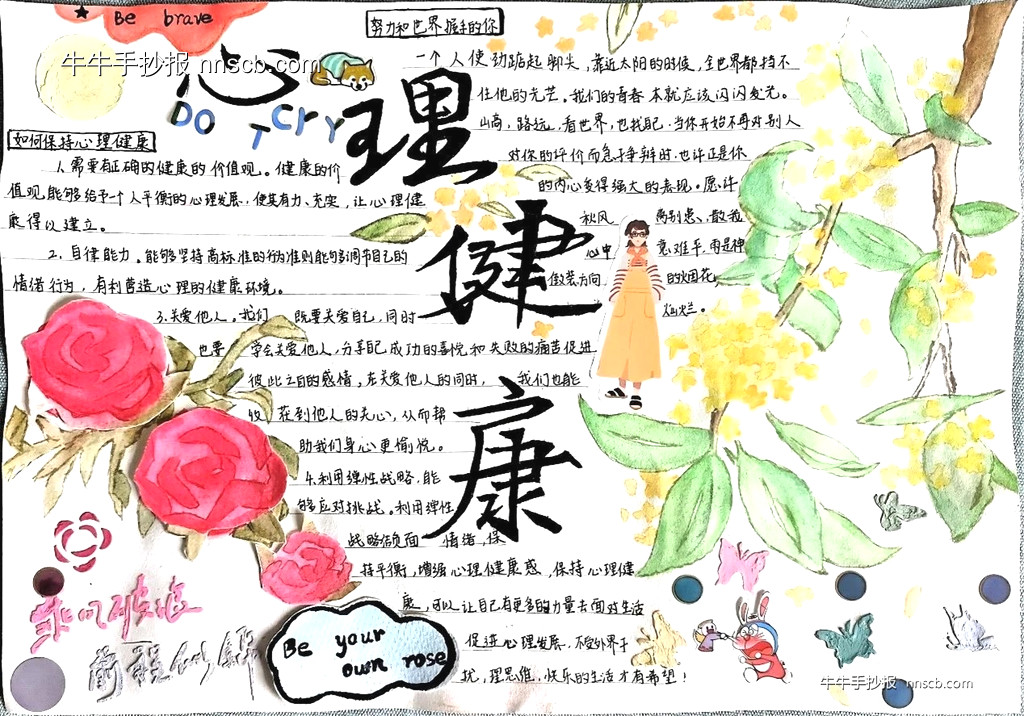 Be brave
牛牛手抄报 nnscb.com
心理健康
DO
T
Cry
努力和世界握手的你
一个人使劲踮起脚尖，靠近太阳的时候，全世界都挡不
住他的光芒。我们的青春本就应该闪闪发光。
山高，路远，看世界，也找自己。当你开始不再对别人
对你的评价而急于争辩时，也许正是你
的内心变得强大的表现。愿许
秋风 离别愁、散我
心中 意难平，再是神
做装方向 的烟花
灿烂。
如何保持心理健康
1.需要有正确的健康的价值观。健康的价
值观，能够给予一个人平衡的心理发展，使其有力、充实，让心理健
康得以建立。
2.自律能力。能够坚持高标准的行为准则能够调节自己的
情绪行为，有利营造心理的健康环境。
3.关爱他人。我们 既要关爱自己，同时
也要 学会关爱他人，分享自己成功的喜悦和失败的痛苦促进
彼此之间的感情。在关爱他人的同时， 我们也能
收 获到他人的关心，从而帮
助我们身心更愉悦。
4.利用弹性战略，能
够应对挑战。利用弹性
战略做负面 情绪，保
持平衡，增强心理健康感，保持心理健
康，可以让自己有更多的力量去面对生活
促进心理发展，不受外界干
扰，理思维，快乐的生活才有希望！
乘风破浪
前程似锦
Be your
own rose
牛牛手抄报 nnscb.com